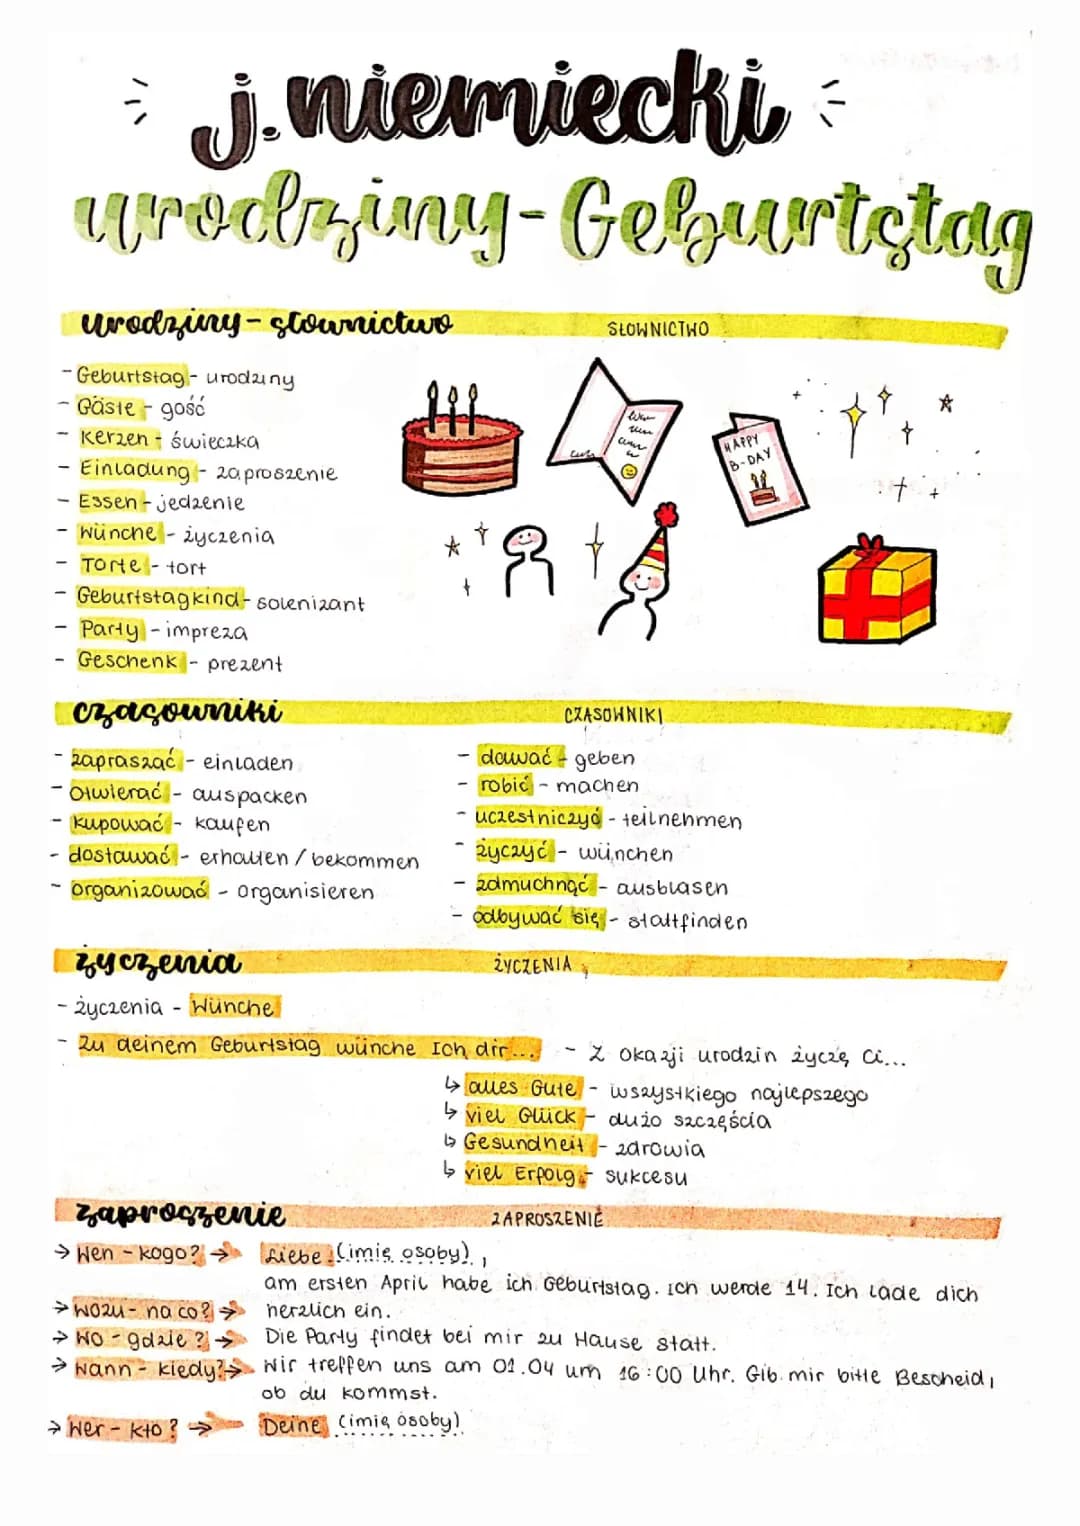 j. niemiecki
urodziny - Geburtstag
urodziny - słownictwo SŁOWNICTWO
- Geburtstag - urodziny
- Gäste - gość
- Kerzen - świeczka
- Einladung - zaproszenie
- Essen - jedzenie
- Wünche - życzenia
- Torte - tort
- Geburtstagkind - solenizant
- Party - impreza
- Geschenk - prezent
HAPPY
B-DAY
czasowniki CZASOWNIKI
- zapraszać - einladen
- otwierać - auspacken
- kupować - kaufen
- dostawać - erhalten / bekommen
- organizować - organisieren
- dawać - geben
- robić - machen
- uczestniczyć - teilnehmen
- życzyć - wünchen
- zdmuchnąć - ausblasen
- odbywać się - stattfinden
życzenia ŻYCZENIA
- życzenia - Wünche
- Zu deinem Geburtstag wünche Ich dir... - Z okazji urodzin życzę Ci...
↳ alles Gute - wszystkiego najlepszego
↳ viel Glück - dużo szczęścia
↳ Gesundheit - zdrowia
↳ viel Erfolg - sukcesu
zaproszenie ZAPROSZENIE
→ Wen - kogo? → Liebe (imię osoby),
am ersten April habe ich Geburtstag. Ich werde 14. Ich lade dich
→ Wozu - na co? → herzlich ein.
→ Wo - gdzie? → Die Party findet bei mir zu Hause statt.
→ Wann - kiedy? → Wir treffen uns am 01.04 um 16:00 Uhr. Gib mir bitte Bescheid,
ob du kommst.
→ Wer - kto? → Deine (imię osoby)